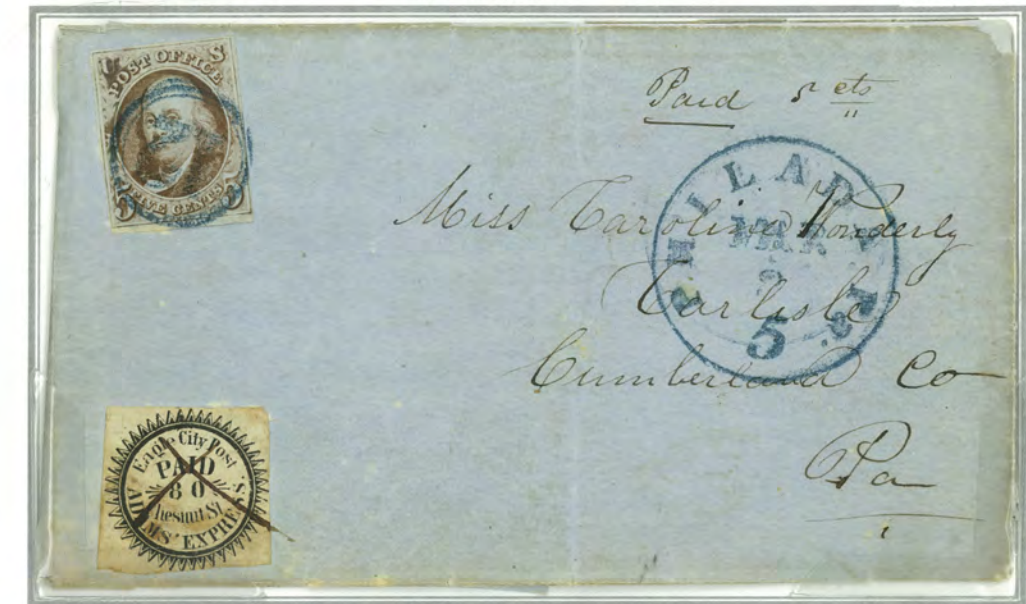 U S
POST OFFICE
FIVE CENTS
Paid 5 cts
PHILADA Pa.
MAR
5
Miss Caroline Wonderly
Carlisle
Cumberland Co
Pa
Eagle City Post
PAID
80
Chesnut St
ADAMS' EXPRESS.